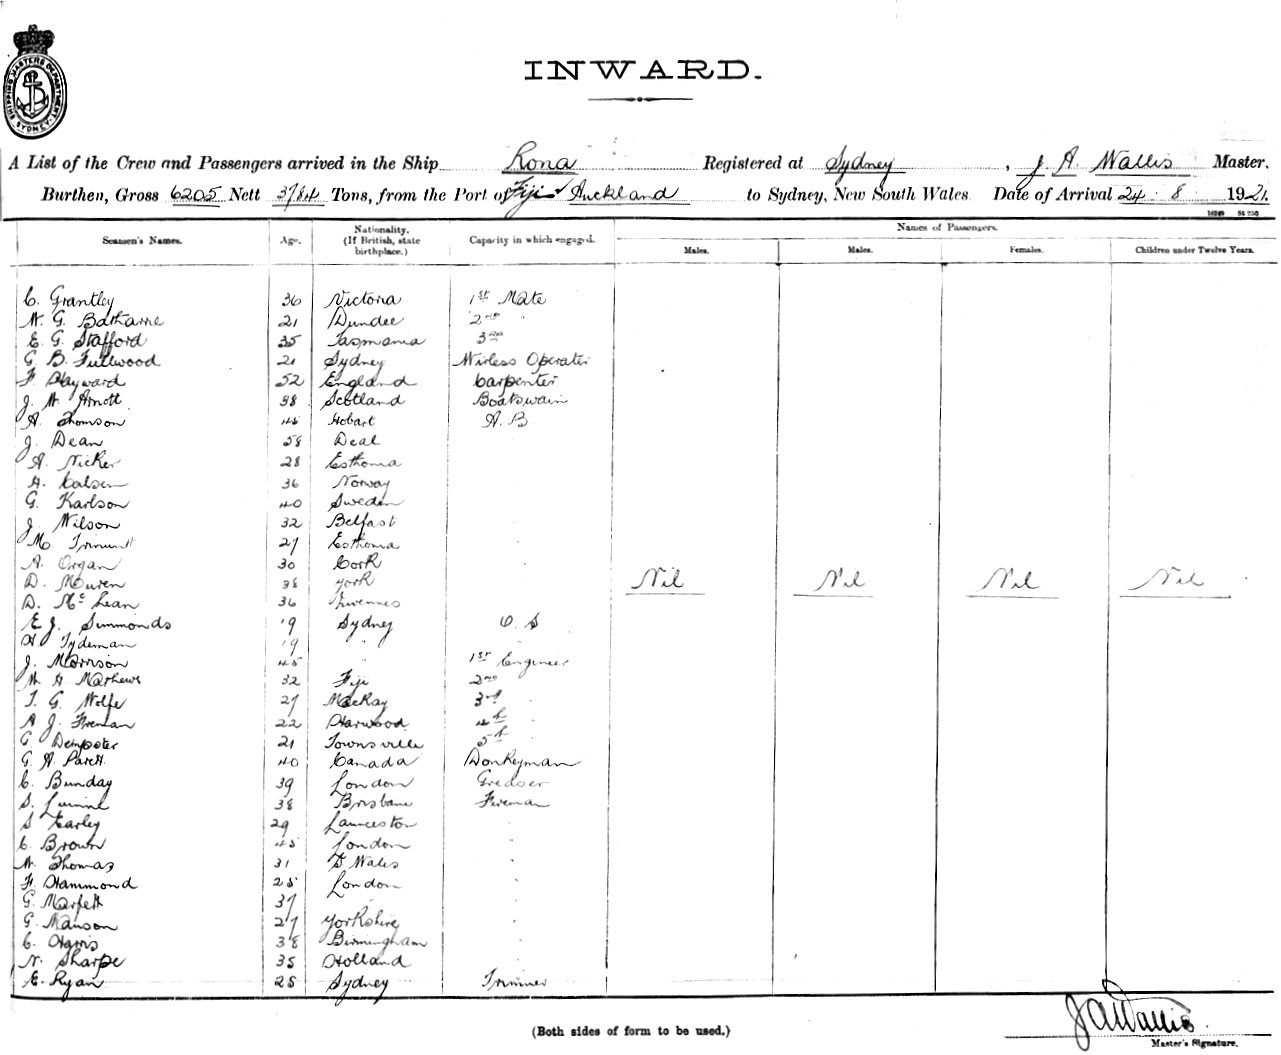 SHIPPING MASTERS DEPARTMENT. SYDNEY.
INWARD.
A List of the Crew and Passengers arrived in the Ship Rona Registered at Sydney, J A Wallis Master.
Burthen, Gross 6205 Nett 3784 Tons, from the Port of Fiji & Auckland to Sydney, New South Wales Date of Arrival 24 8 1921.
Seamen's Names. Age. Nationality. (If British, state birthplace.) Capacity in which engaged. Names of Passengers.
Males. Males. Females. Children under Twelve Years.
C. Grantley 36 Victoria 1st Mate
W. G. 21 Dundee 2nd "
E. G. Stafford 35 Tasmania 3rd
G B. Fullwood 21 Sydney Wirless Operater
F. Hayward 52 England Carpenter
J. W. Arnott 38 Scotland Boatswain
A. Thomson 45 Hobart A. B
J. Dean 58 Deal
A. Nicker 28 Esthonia
H. Calsen 36 Norway
G. Karlson 40 Sweden
J. Wilson 32 Belfast
M. 27 Esthonia
A. Organ 30 Cork
D. 38 York Nil Nil Nil Nil
D. McLean 36
E. J. Simmonds 19 Sydney O. S
H. Tydeman 19 "
J. Morrison 45 " 1st Engineer
W. H. Mathews 32 Fiji 2nd "
T. G. Wolfe 27 MacKay 3rd "
A J. Fireman 22 Harwood 4th "
G Dempster 21 Townsville 5th "
G. A. 40 Canada Donkeyman
C. Bunday 39 London Greaser
S. 38 Brisbane Fireman
S Earley 29 Launceston "
C. Brown 45 London "
W. Thomas 31 S Wales "
F. Hammond 25 London "
G. Marfett 37 "
G. Manson 27 Yorkshire "
C. Harris 38 Birmingham "
N. Sharpe 35 Holland "
E. Ryan 25 Sydney Trimmer
J A Wallis.
(Both sides of form to be used.)
Master's Signature.